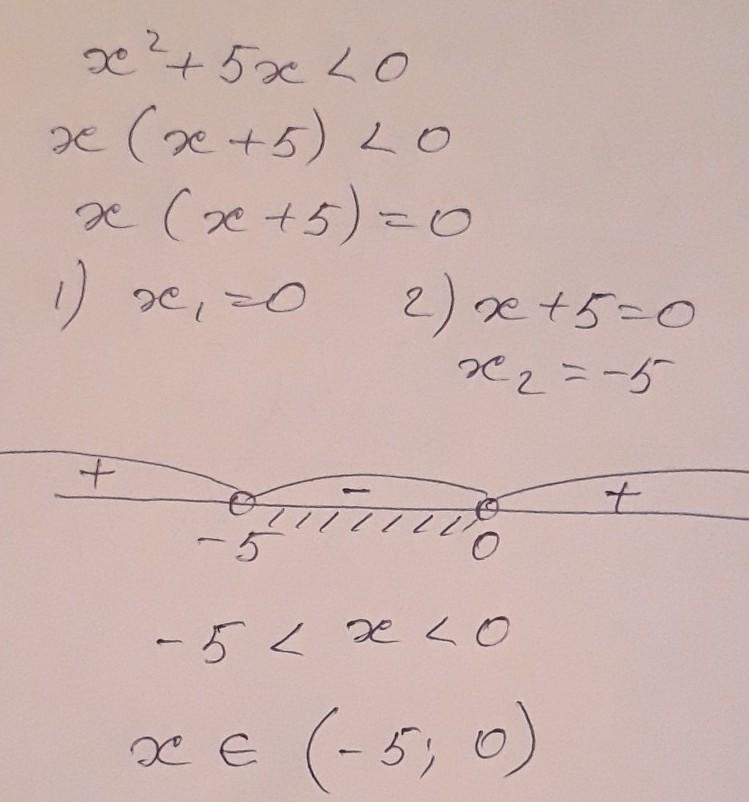 x² + 5x < 0
x (x + 5) < 0
x (x + 5) = 0
1) x₁ = 0 2) x + 5 = 0
x₂ = -5
+ - +
-5 0
-5 < x < 0
x ∈ (-5; 0)